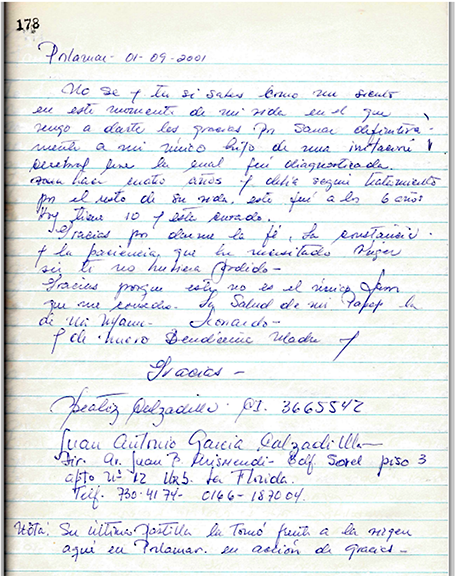 178
Porlamar - 01-09-2001
No se y tu si sabes como me siento
en este momento de mi vida en el que
vengo a darte las gracias por sanar definitiva-
mente a mi único hijo de una irritación
cerebral con la cual fué diagnosticada
para hacer cuatro años y debia seguir tratamiento
por el resto de su vida. esto fué a los 6 años
hoy tiene 10 y esta curado.
Gracias por darme la fé, la constancia
y la paciencia que he necesitado Virgen
sin ti no hubiera podido -
Gracias porque este no es el único favor
que me concedes. La Salud de mi Papa, la
de mi Mami - Leonardo -
y de nuevo Bendiceme Madre y
Gracias -
Beatriz Calzadilla. CI. 3665542
Juan Antonio Garcia Calzadilla
Dir. Av. Juan B. Arismendi - Edf. Sorel piso 3
apto Nº 12 Urb. La Florida.
Telf. 730-4174 - 0166-187004.
Nota: Su última pastilla la tomó frente a la virgen
aqui en Porlamar. en acción de gracias -